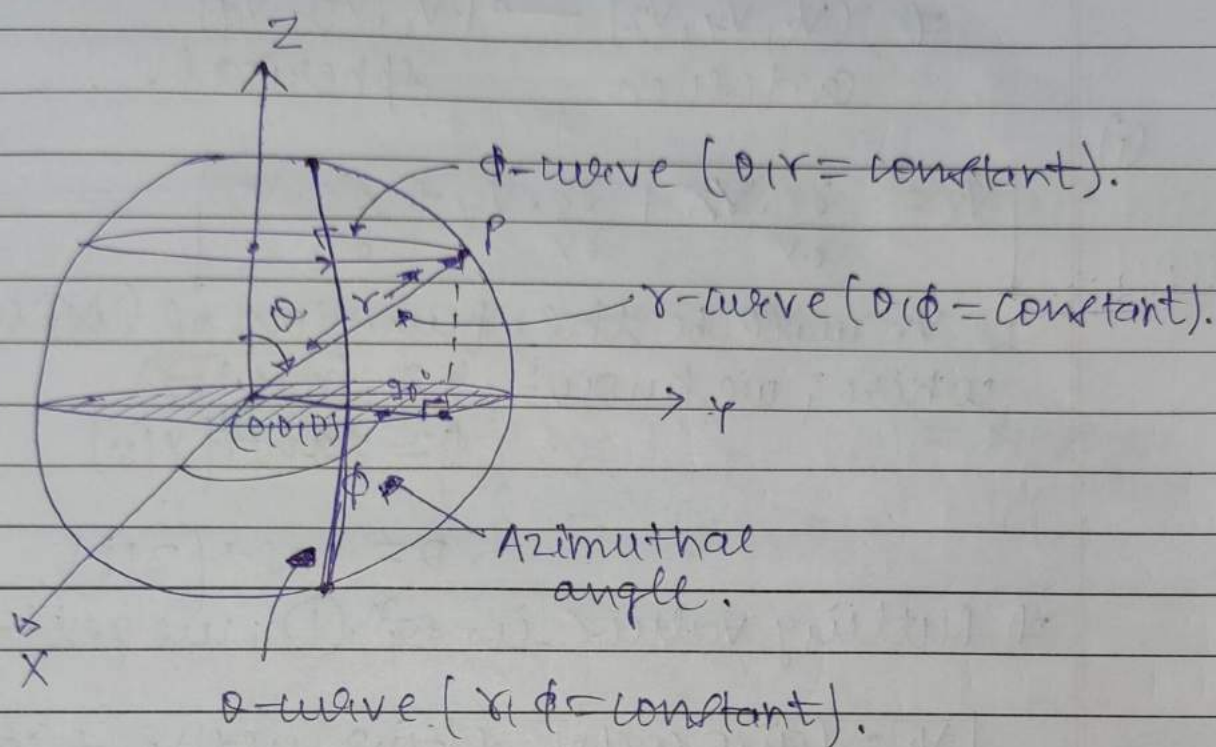 Z
φ-curve (θ,r = constant).
P
θ
r
r-curve (θ,φ = constant).
90°
(0,0,0)
Y
φ
Azimuthal
angle.
X
θ-curve (r, φ = constant).